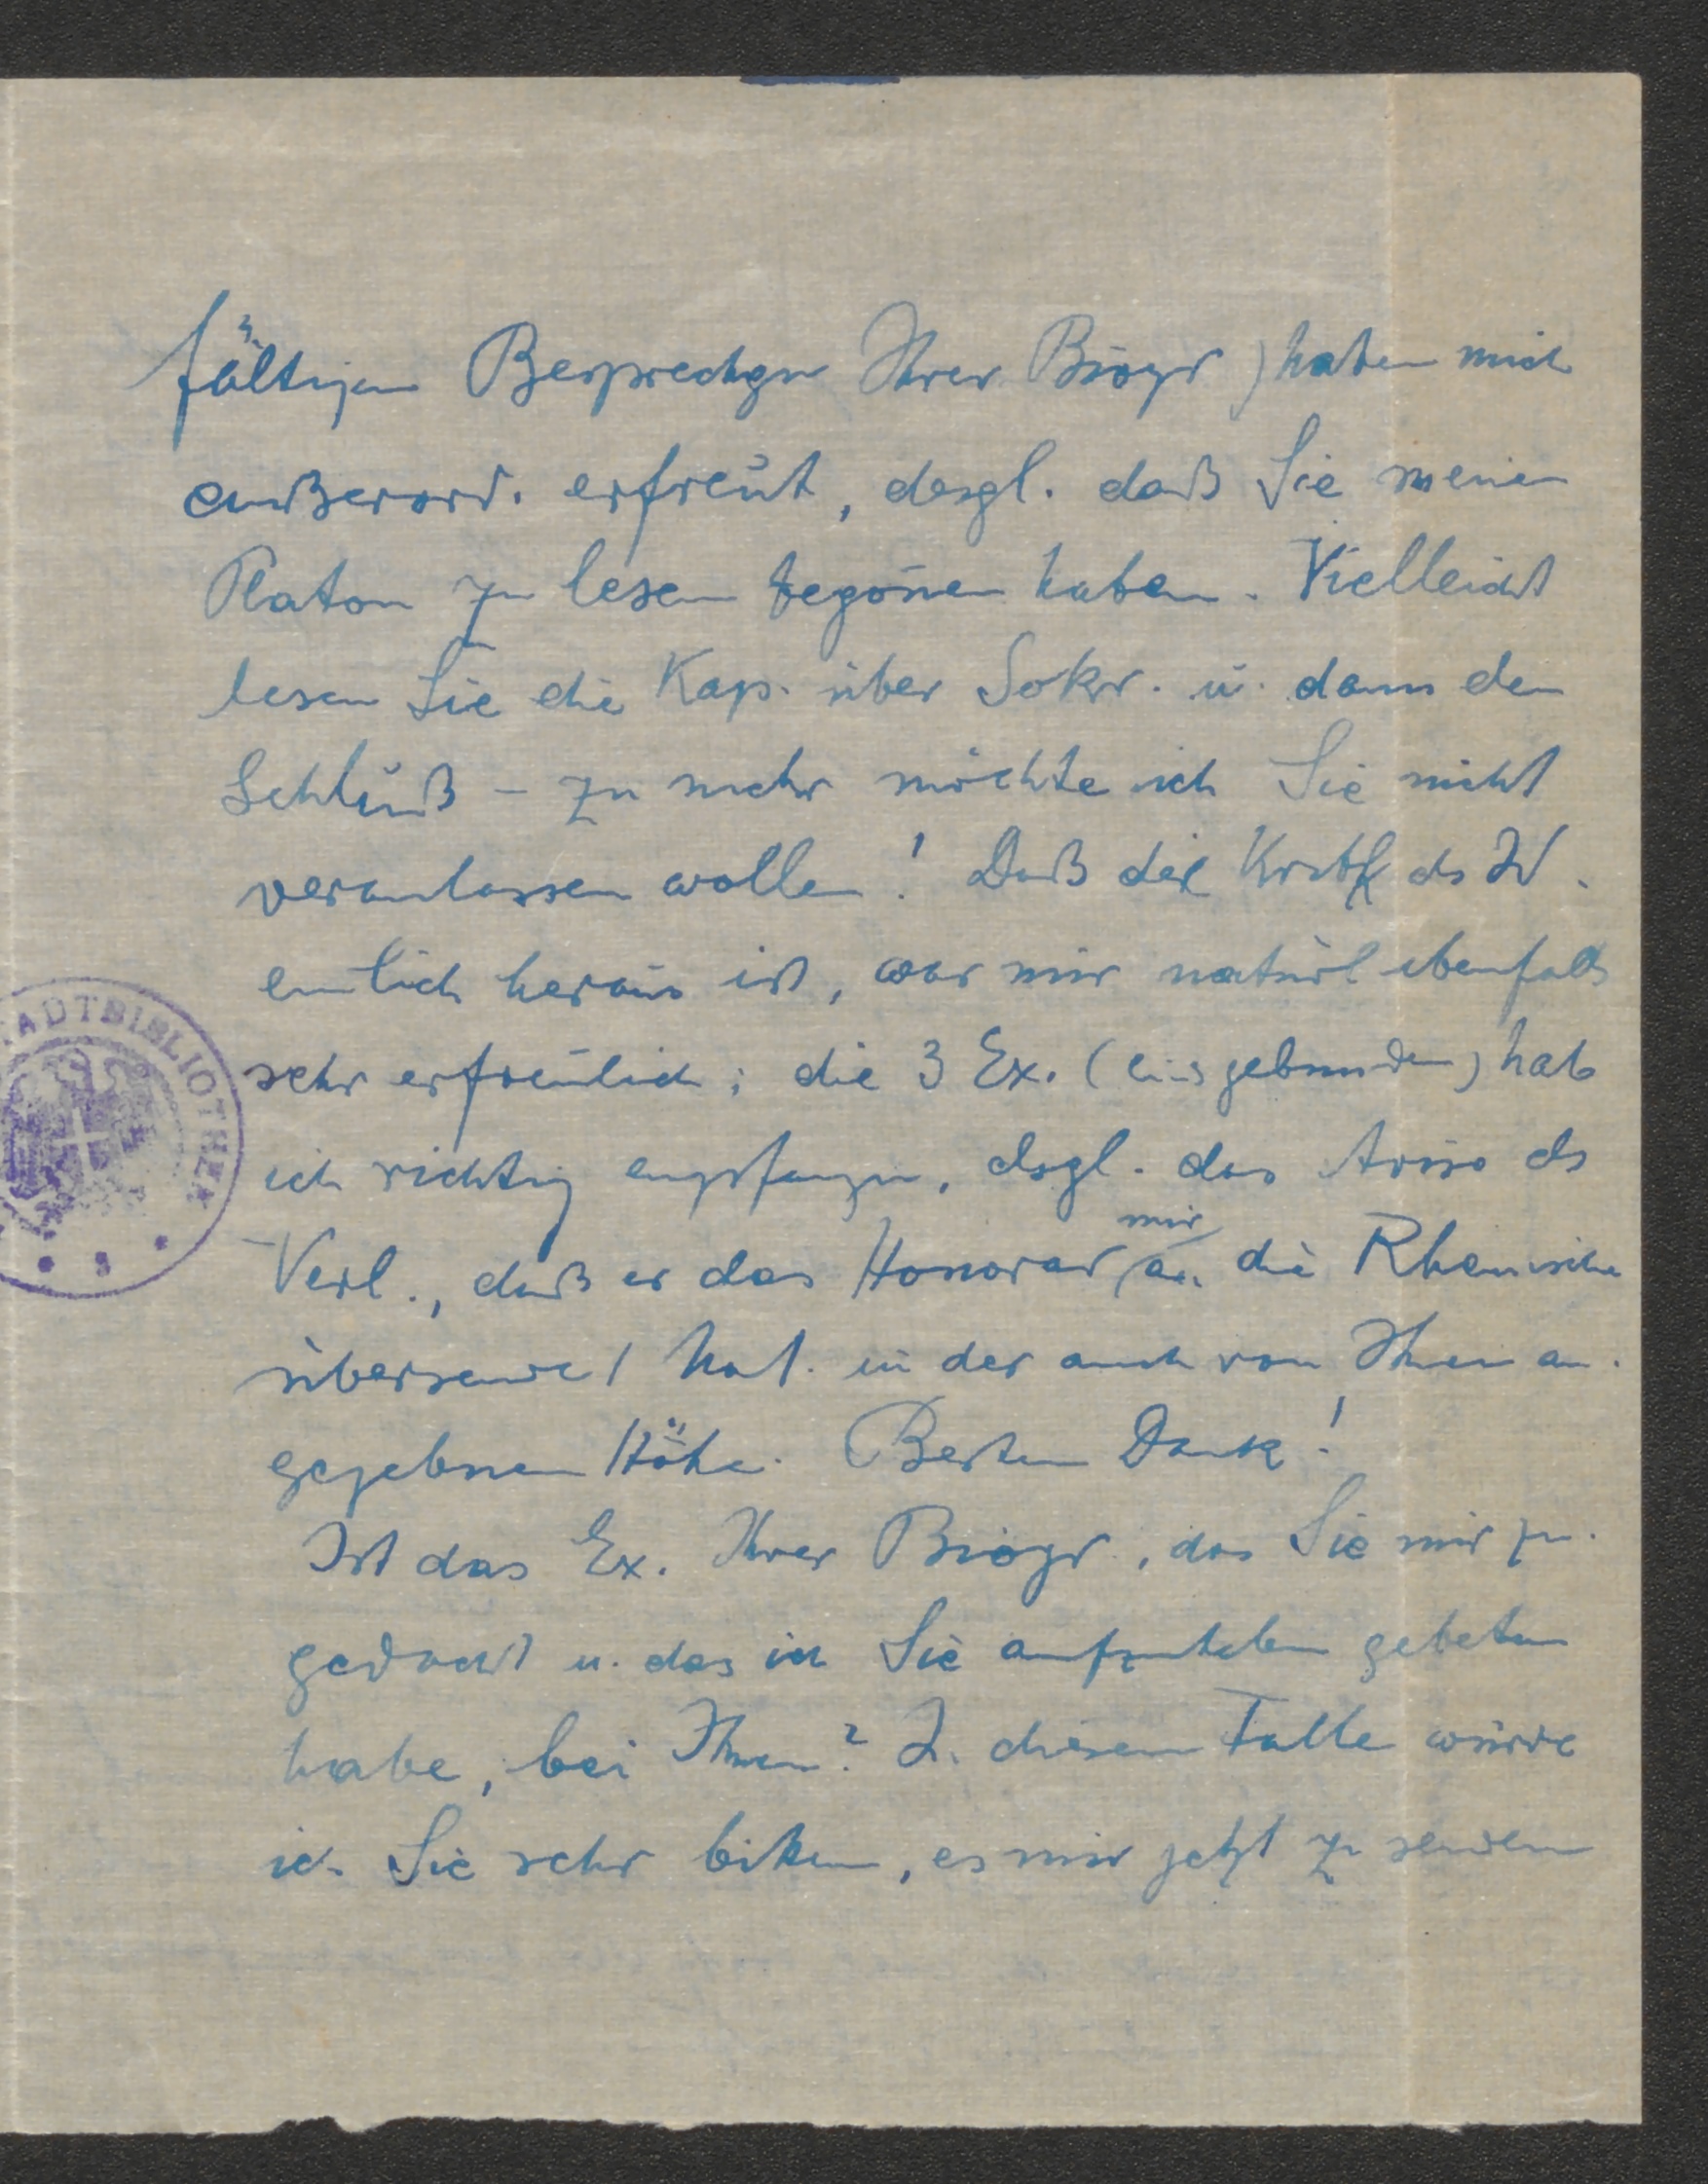 fältigen Besprechgn Ihrer Biogr) haben mich
außerord. erfreut, desgl. daß Sie meinen
Platon zu lesen begon̄en haben. Vielleicht
lesen Sie die Kap. über Sokr. u. dann den
Schluß – zu mehr möchte ich Sie nicht
veranlassen wollen! Daß der ds W.
endlich heraus ist, war mir natürl ebenfalls
sehr erfreulich; die 3 Ex. (eins gebunden) hab
ich richtig empfangen, dsgl. das Aviso ds
Verl., daß er das Honorar mir an die Rheinische
übersandt hat. in der auch von Ihnen an-
gegebnen Höhe. Besten Dank!
Ist das Ex. Ihrer Biogr, das Sie mir zu-
gedacht u. das ich Sie aufzuheben gebeten
habe, bei Ihnen? In diesem Falle würde
ich Sie sehr bitten, es mir jetzt zu senden
ADTBIBLIOTHEK